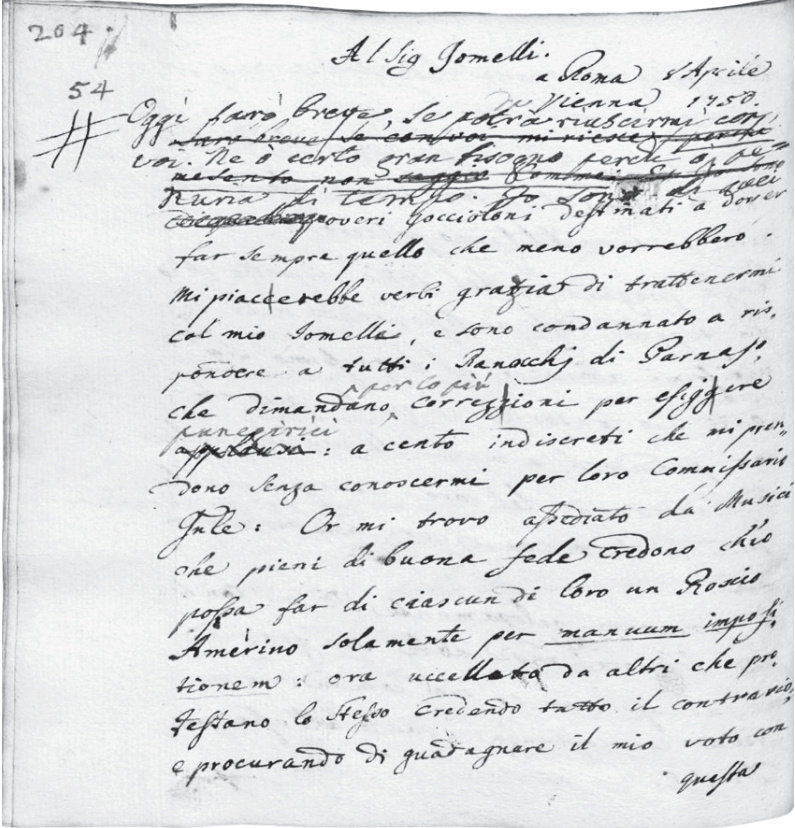 204
54
Al Sig Jomelli.
a Roma 8 Aprile
Vienna 1750.
Oggi farò breve, se potrà riuscirmi con
Sarò breve se con voi mi riesce,
voi. Ne ò certo gran bisogno perchè ò pe=
non
nuria di tempo. Io sono di quei
poveri gocciolоni destinati a dover
far sempre quello che meno vorrebbero.
Mi piaccerebbe verbi grazia di trattenermi
col mio Jomelli, e sono condannato a ris,
pondere a tutti i Ranocchj di Parnaso,
per lo più
che dimandano correzzioni per esiggere
panegirici
applausi: a cento indiscreti che mi pren,
dono senza conoscermi per loro Commissario
Gnle: Or mi trovo assediato da Musici
che pieni di buona fede credono ch'io
possa far di ciascun di loro un Roscio
Amerino solamente per manuum imposi,
tionem: ora uccellato da altri che pro,
testano lo stesso credendo tutto il contrario,
e procurando di guadagnare il mio voto con
questa